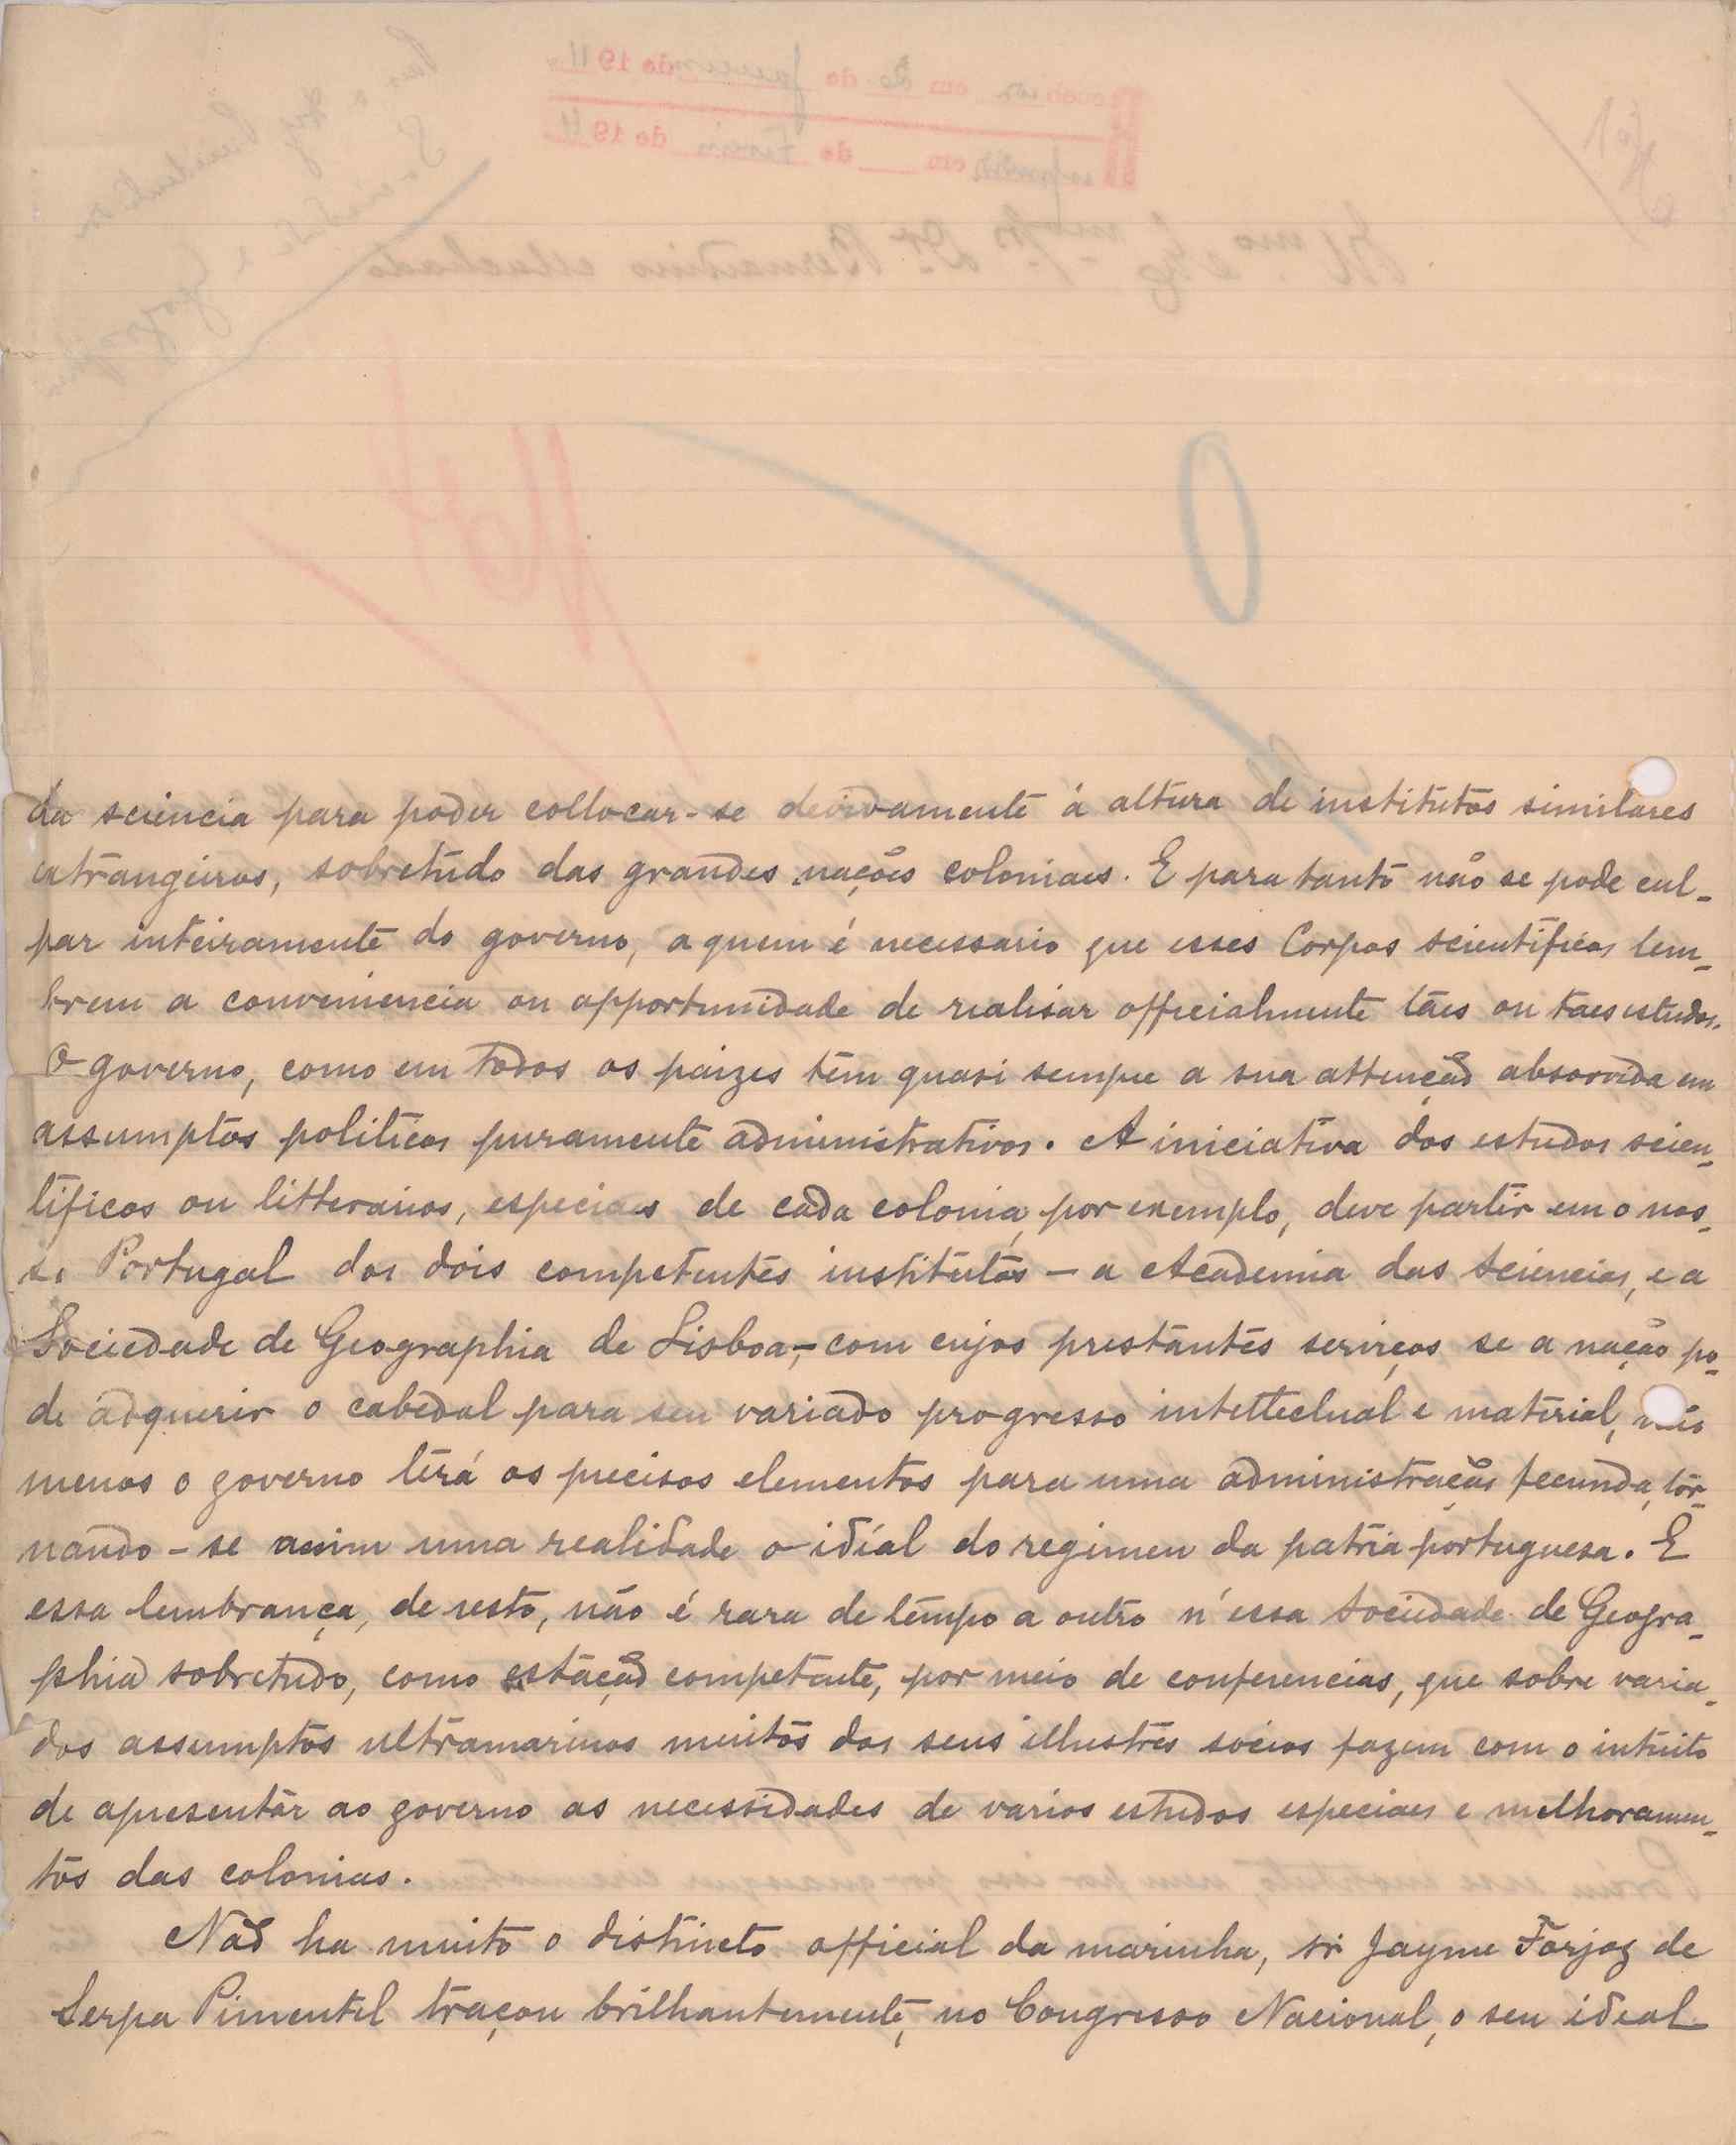 da sciencia para poder collocar-se devidamente á altura de institutos similares
extrangeiros, sobretudo das grandes nações coloniaes. E para tanto não se pode cul-
par inteiramente do governo, a quem é necessario que esses Corpos scientificos lem-
brem a conveniencia ou opportunidade de realisar officialmente táes ou taes estudos.
O governo, como em todos os paizes têm quasi sempre a sua attenção absorvida em
assumptos politicos puramente administrativos. A iniciativa dos estudos scien-
tificos ou litterarios, especiaes de cada colonia, por exemplo, deve partir em o nos-
so Portugal dos dois competentes institutos – a Academia das Sciencias, e a
Sociedade de Geographia de Lisboa, – com cujos prestantes serviços se a nação po-
de adquerir o cabedal para seu variado progresso intellectual e material, não
menos o governo terá os precisos elementos para uma administração fecunda, tor-
nando-se assim uma realidade o idíal do regimen da patria portuguesa. E
essa lembrança, de resto, não é rara de tempo a outro n'essa Sociedade de Geogra-
phia sobretudo, como estação competente, por meio de conferencias, que sobre varia-
dos assumptos ultramarinos muitos dos seus illustres socios fazem com o intuito
de apresentar ao governo as necessidades, de varios estudos especiaes e melhoramen-
tos das colonias.
Não ha muito o distincto official da marinha, sr Jayme Forjaz de
Serpa Pimentel traçou brilhantemente, no Congresso Nacional, o seu ideal